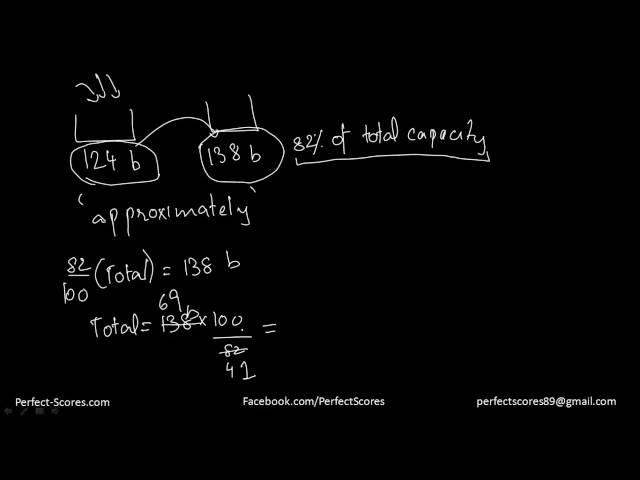 124 b 138 b 82% of total capacity
'approximately'
82/100 (Total) = 138 b
69
Total = 138 b × 100 =
82
41
Perfect-Scores.com Facebook.com/PerfectScores perfectscores89@gmail.com